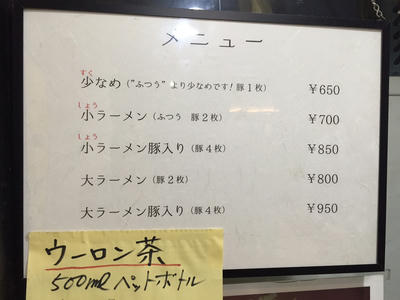 メニュー
すく
少なめ（"ふつう"より少なめです！豚１枚） ￥650
しょう
小ラーメン（ふつう 豚２枚） ￥700
しょう
小ラーメン豚入り（豚４枚） ￥850
大ラーメン（豚２枚） ￥800
大ラーメン豚入り（豚４枚） ￥950
ウーロン茶
500ml ペットボトル